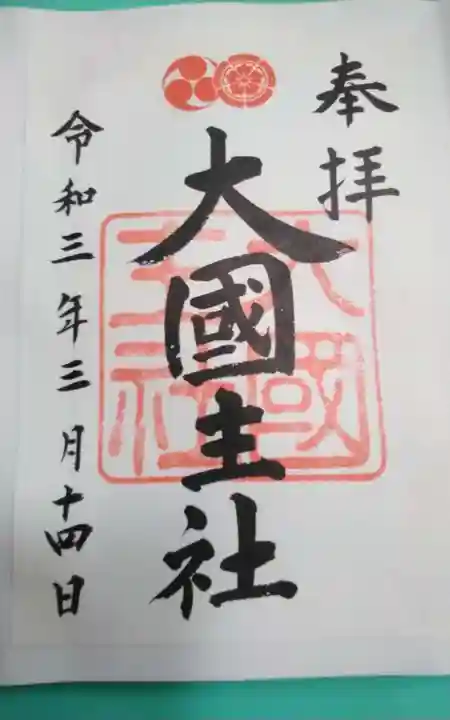 奉拝
大國主社
大國
主社
令和三年三月十四日